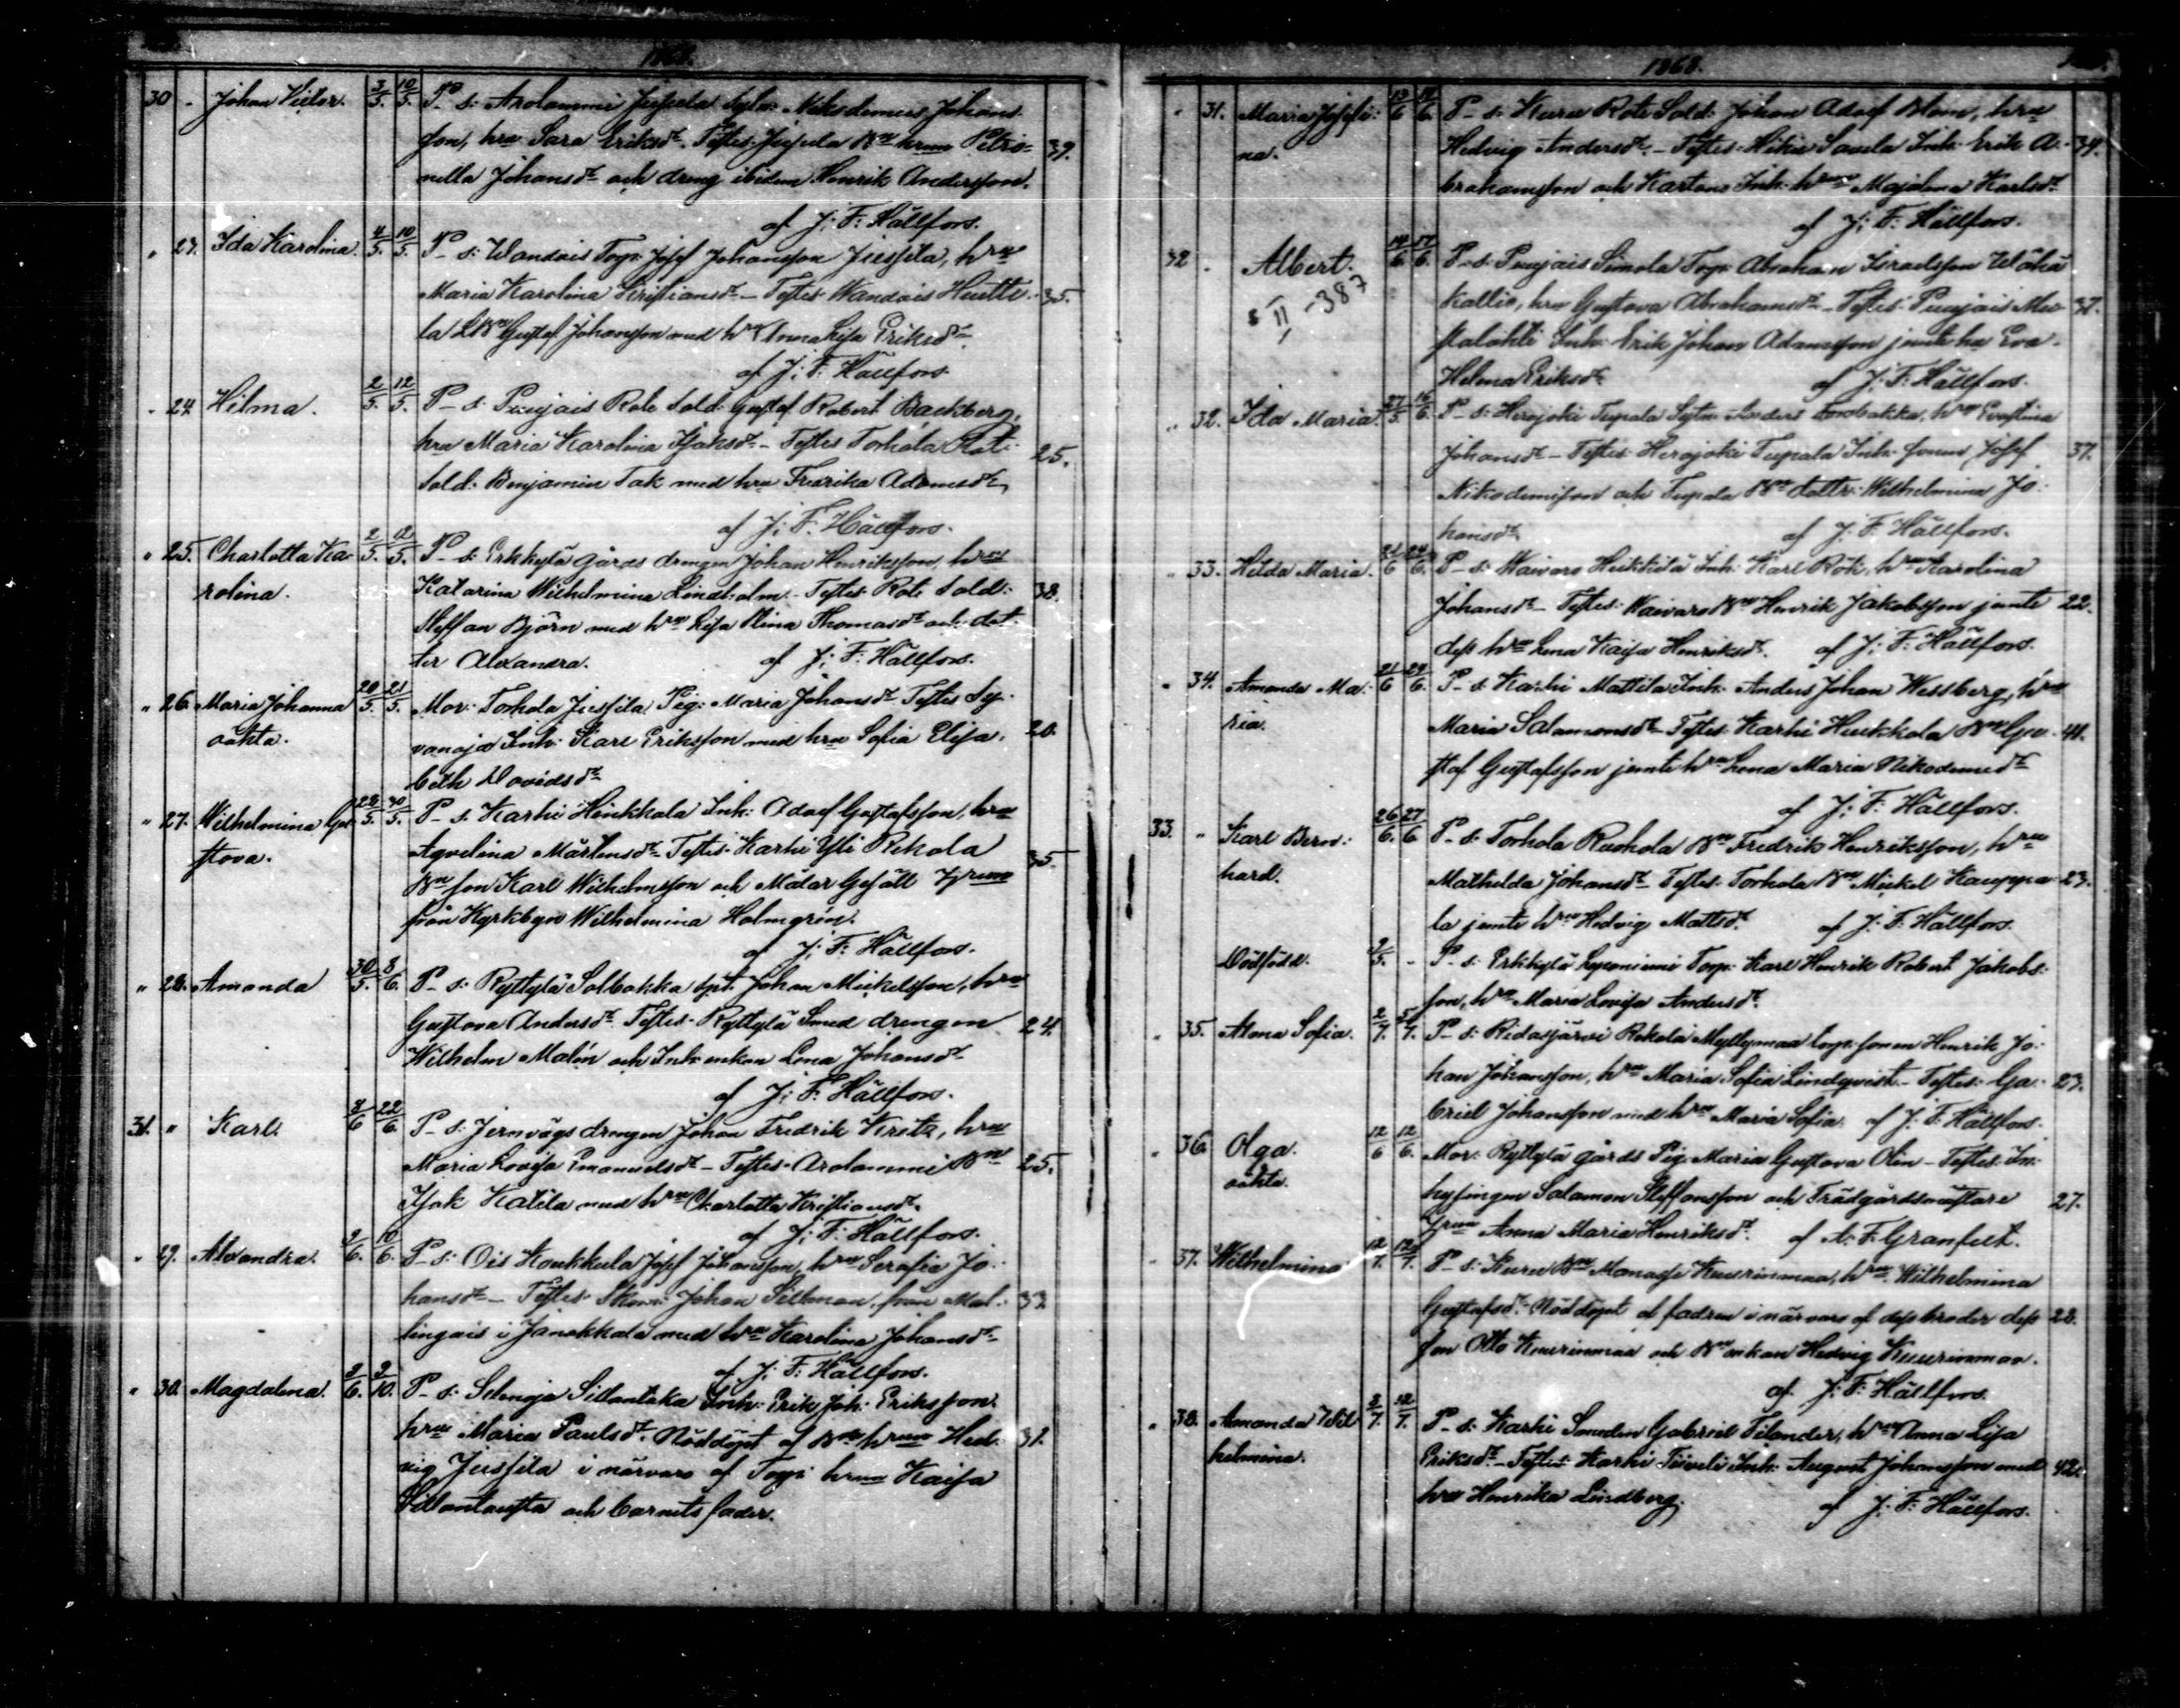 1868.
30 - Johan Victor. 3/5. 10/5. P. s: Arolammi Jussila Sytn: Nikodemus Johans-
son, hru Sara Eriksdr. Testes: Jussila Bn hrun Petro- 39.
nella Johansdr och dreng ibidem Henrik Andersson.
af J: F: Hällfors.
" 23. Ida Karolina. 4/5. 10/5. P. s: Wandais Torp: Josef Johansson Jussila, hru
Maria Karolina Kristiansdr - Testes Wandais Huitti- 35.
la Bn Gustaf Johansson med hru Anna Lisa Eriksdr.
af J: F: Hällfors
" 24. Hilma. 2/5. 12/5. P. s: Punjais Rote Sold: Gustaf Robert Backberg,
hru Maria Karolina Isaksdr - Testes Torhola Rot: 25.
Sold: Benjamin Tak med hru Fredrika Adamsdr
af J: F: Hällfors.
" 25. Charlotta Ka- 2/5. 12/5. P. s: Erkkylä gårds drengen Johan Henriksson, hru
rolina. Katarina Wilhelmina Lindholm - Testes Rote Sold: 38.
Steffan Björn med hru Lisa Stina Thomasdr och dot-
ter Alexandra. af J: F: Hällfors.
" 26. Maria Johanna 20/5. 21/5. Mor: Torhola Jussila Pig: Maria Johansdr Testes Sy-
oäkta. vanoja Inh: Karl Eriksson med hru Sofia Elisa- 20.
beth Davidsdr
" 27. Wilhelmina Gu- 28/5. 30/5. P. s: Karhi Heikkala Inh: Adolf Gustafsson, hru
stova. Agvelina Mårtensdr Testes Karhi Yli Rekola 35
Bn son Karl Wilhelmsson och Målar Gesäll Hrun
från Kyrkbyn Wilhelmina Holmgrén.
af J: F: Hällfors.
" 28. Amanda 30/5. 8/6. P. s: Ryttylä Solbakka Johan Mickelsson, hru
Gustava Andersdr. Testes Ryttylä Smed drengen 24.
Wilhelm Malén och Inh: enkan Lena Johansdr
af J: F: Hällfors.
31. " Karl. 8/6 22/6. P. s: Jernvägs drengen Johan Fredrik Kreita, hru
Maria Lovisa Emanuelsdr - Testes Arolammi Bn 25.
Isak Katila med hru Charlotta Kristiansdr.
af J: F: Hällfors.
" 29. Alexandra. 2/6. 10/6. P. s: Ois Koukkula Josef Johansson, hru Serafia Jo-
hansdr - Testes Skom: Johan Sillman från Mal- 33
lingais i Janakkala med hru Karolina Johansdr
af J: F: Hällfors.
" 30. Magdalena. 2/6. 9/10. P. s: Selenoja Sillantaka Inh: Erik Joh: Eriksson
hru Maria Paulsdr. Nöddöpt af Bn hrun Hed- 31.
vig Jussila i närvaro af Torp: hrun Kaisa
Sillantausta och barnets fader.
1868.
" 31. Maria Josefi- 13/6 14/6. P. s: Kuru Rote Sold: Johan Adolf Blom, hru
na. Hedvig Andersdr. - Testes Hikiä Savela Inh: Erik A- 34.
brahamsson och Kartano Inh: hrun Majalena Karlsdr
af J: F: Hällfors.
32 - Albert. 14/6. 17/6. P. s: Punjais Simola Torp: Abraham Israelsson Wähä
s II - 387 kallio, hru Gustava Abrahamsdr - Testes Punjais Mu- 37.
stalahti Inh: Erik Johan Adamsson jemte hu Eva
Helena Eriksdr. af J: F: Hällfors.
" 32. Ida Maria. 27/5. 16/6. P. s: Herajoki Tupala Sytn: Anders Londbakka, hru Evastina
Johansdr - Testes Herajoki Tupala Inh: sonen Josef 37.
Nikodemsson och Tupala Bn dottr: Wilhelmina Jo-
hansdr. af J: F: Hällfors.
" 33. Hilda Maria. 21/6 24/6. P. s: Waivaro Heikkilä Inh: Karl Rök, hru Karolina
Johansdr - Testes: Waivaro Bn Henrik Jakobsson jemte 22.
dess hru Lena Kaisa Henriksdr. af J: F: Hällfors.
" 34. Amanda Ma- 21/6 24/6. P. s: Karhi Mattila Inh: Anders Johan Wessberg, hru
ria. Maria Salamonsdr - Testes Karhi Heikkala Bn Gu- 41.
staf Gustafsson jemte hru Lena Maria Nikodemsdr
af J: F: Hällfors.
33. " Karl Bern- 26/6. 27/6 P. s: Torhola Ruohola Bn Fredrik Henriksson, hru
hard. Mathilda Johansdr Testes Torhola Bn Mickel Kauppi- 23.
la jemte hru Hedvig Mattsdr. af J: F: Hällfors.
Dödfödd. 2/5. - P. s: Erkkylä Leponiemi Torp: Karl Henrik Robert Jakobs-
son, hru Maria Lovisa Andersdr.
" 35. Alma Sofia. 2/7. 5/7. P. s: Ridasjärvi Rekola Myllymaa torp: sonen Henrik Jo-
han Johansson, hru Maria Sofia Lindqvist - Testes: Ga- 27.
briel Johansson med hru Maria Sofia. af J: F: Hällfors.
" 36 Olga. 12/6 12/6. Mor: Ryttylä gårds Pig: Maria Gustava Olin - Testes: In-
oäkta. hysingen Salamon Steffansson och Trädgårdsmästare 27.
hrun Anna Maria Henriksdr. af A: F: Granfelt.
" 37. Wilhelmina 12/7. 12/7. P. s: Kuru Bn Manasse Kuurinmaa, hru Wilhelmina
Gustafsdr. Nöddöpt af fadren i närvaro af dess broder dess 28.
son Otto Kuurinmaa och Bn enkan Hedvig Kuurinmaa.
af J: F: Hällfors.
" 38. Amanda Wil- 2/7. 12/7. P. s: Karhi Smeden Gabriel Tilander, hru Anna Lisa
helmina. Eriksdr - Testes Karhi Tiiveli Inh: August Johansson med 42.
hru Henrika Lindberg. af J: F: Hällfors.